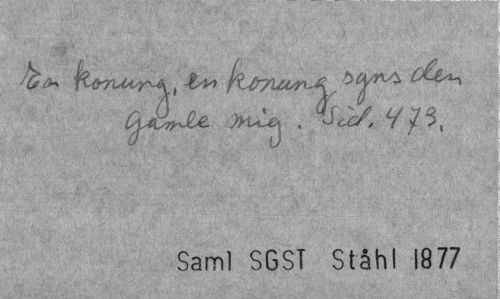 En konung, en konung syns den
gamle mig. Sid. 473.
Saml SGST Ståhl 1877